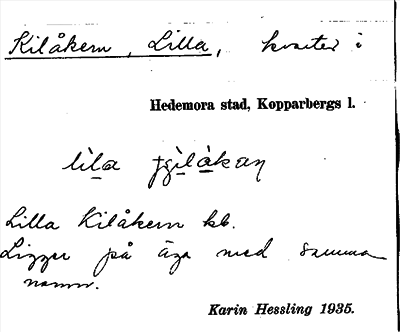 Kilåkern, Lilla, kvarter i
Hedemora stad, Kopparbergs l.
lila
Lilla Kilåkern kb.
Ligger på äga med samma
namn.
Karin Hessling 1935.